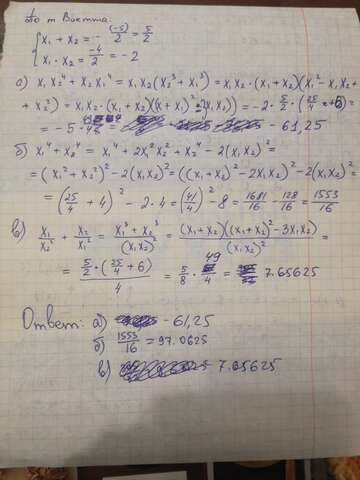 По т Виетта.
x₁ + x₂ = - (-5)/2 = 5/2
x₁ · x₂ = -4/2 = -2
а) x₁x₂⁴ + x₂x₁⁴ = x₁x₂(x₂³ + x₁³) = x₁x₂ · (x₁+x₂)(x₁² - x₁x₂ +
+ x₂²) = x₁x₂ · (x₁+x₂)((x₁+x₂)² - 3x₁x₂) = -2 · 5/2 · (25/4 + 6) =
= -5 · 49/4 = - 61,25
б) x₁⁴ + x₂⁴ = x₁⁴ + 2x₁²x₂² + x₂⁴ - 2(x₁x₂)² =
= (x₁² + x₂²)² - 2(x₁x₂)² = ((x₁+x₂)² - 2x₁x₂)² - 2(x₁x₂)² =
= (25/4 + 4)² - 2 · 4 = (41/4)² - 8 = 1681/16 - 128/16 = 1553/16
в) x₁/x₂² + x₂/x₁² = (x₁³ + x₂³)/(x₁x₂)² = (x₁+x₂)((x₁+x₂)² - 3x₁x₂)/(x₁x₂)² =
= 5/2 · (25/4 + 6)/4 = 5/8 · 49/4 = 7.65625
Ответ: а) - 61,25
б) 1553/16 = 97.0625
в) 7.65625